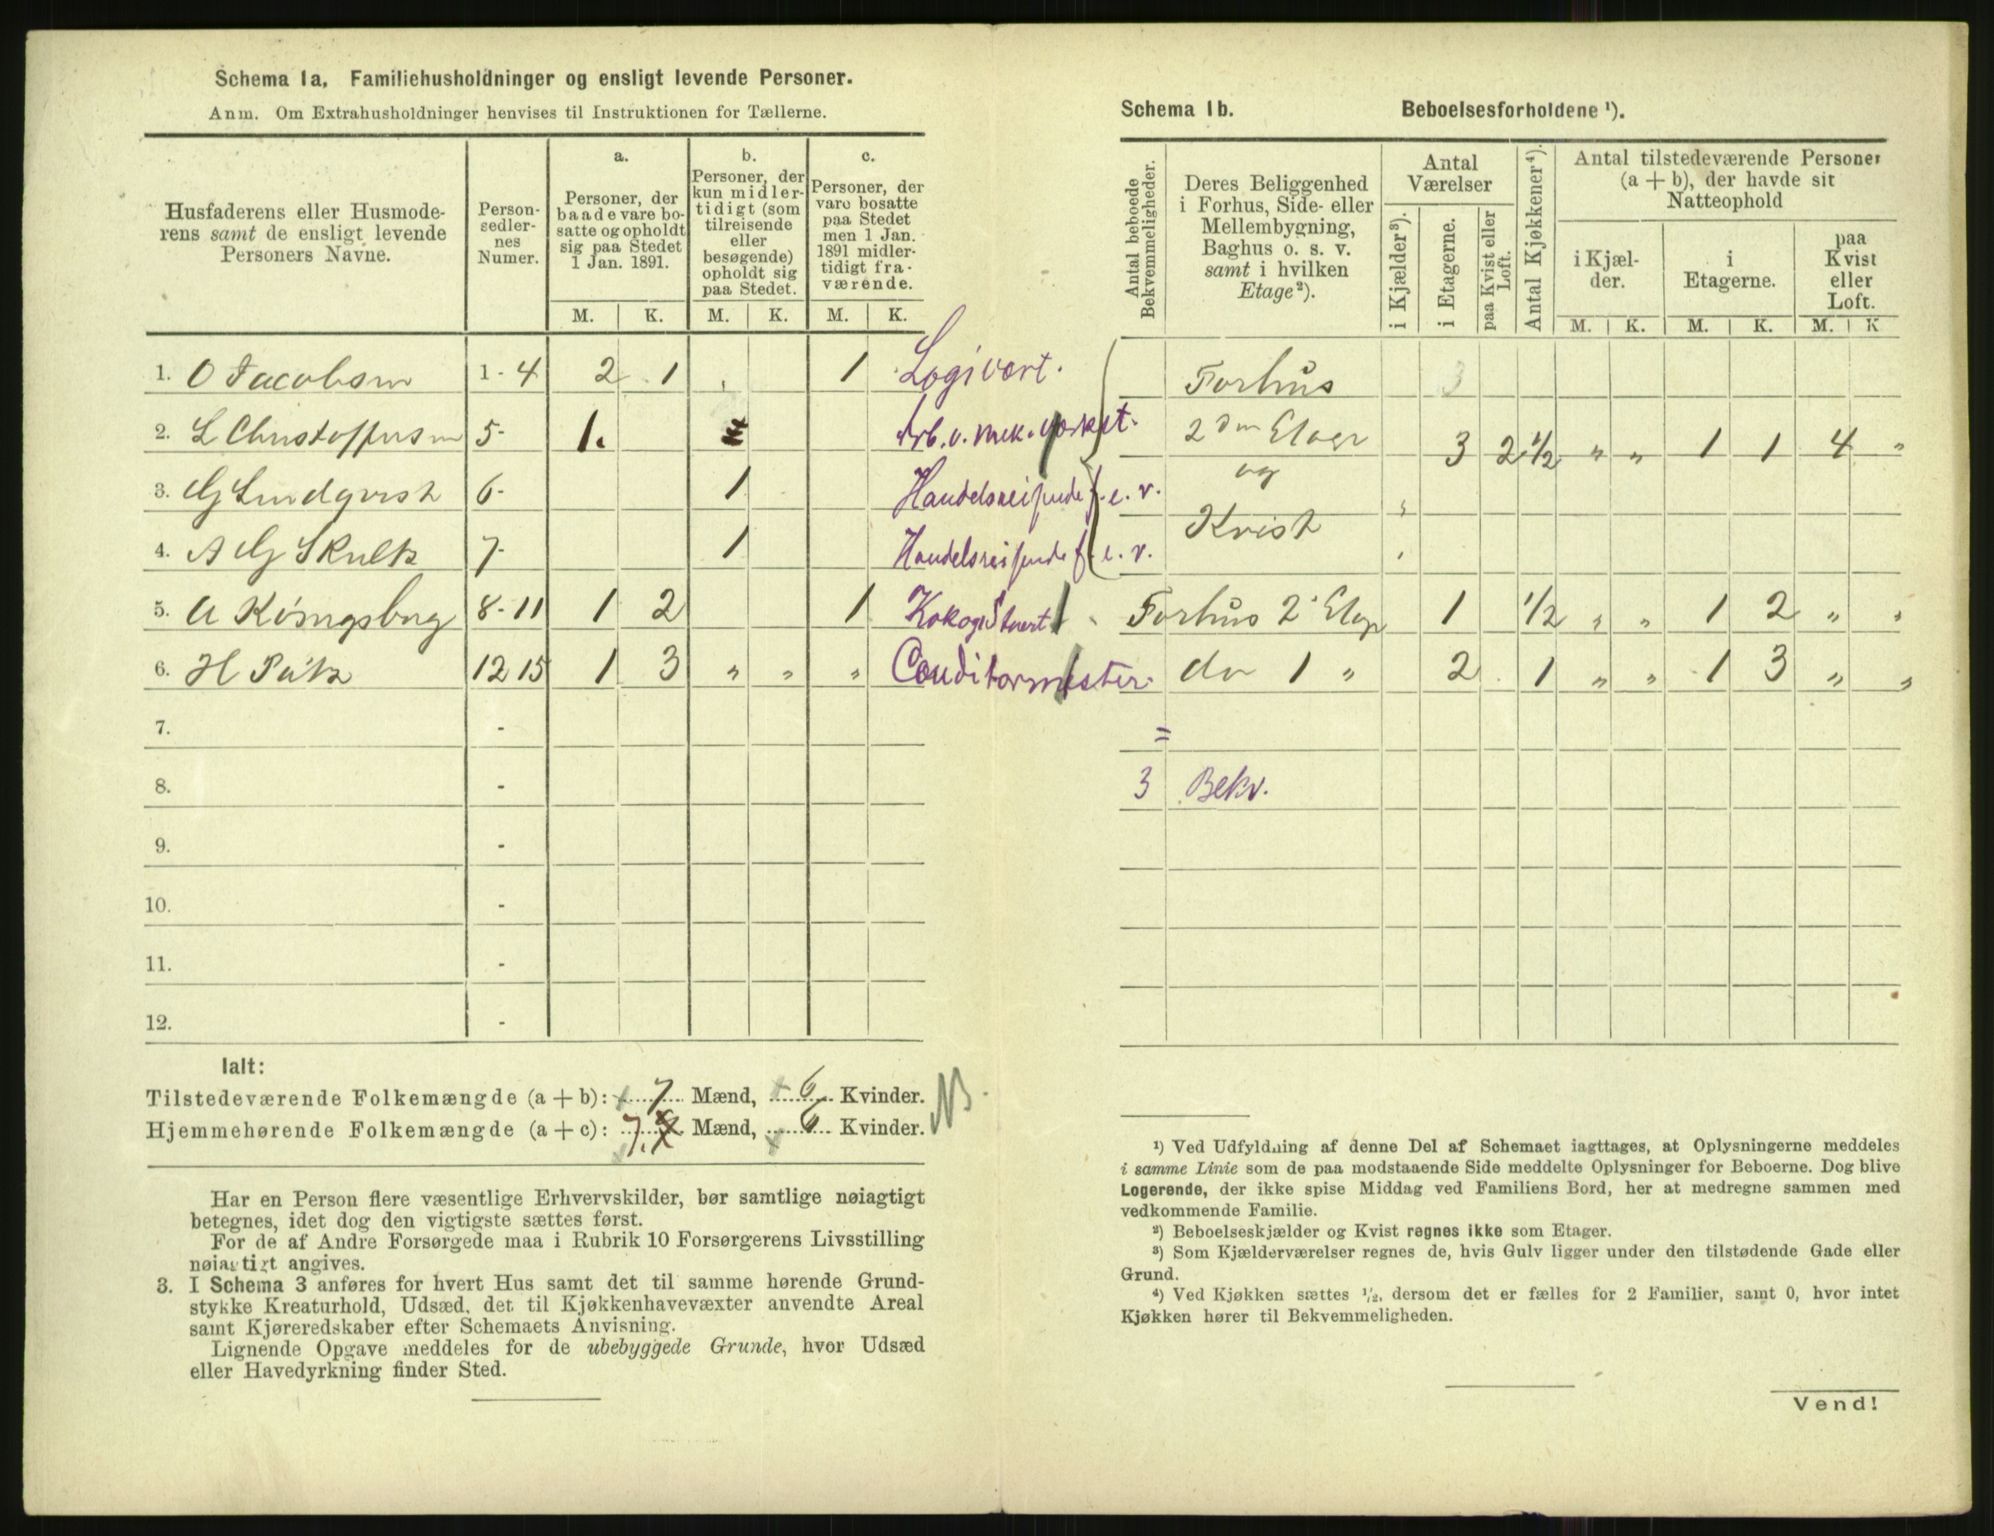 Schema 1a, Familiehusholdninger og ensligt levende Personer.
Anm. Om Extrahusholdninger henvises til Instruktionen for Tællerne.
Husfaderens eller Husmode-
rens samt de ensligt levende
Personers Navne.
Person-
sedler-
nes
Numer.
a.
Personer, der
baade vare bo-
satte og opholdt
sig paa Stedet
1 Jan. 1891.
b.
Personer, der
kun midler-
tidigt (som
tilreisende
eller
besøgende)
opholdt sig
paa Stedet.
c.
Personer, der
vare bosatte
paa Stedet
men 1 Jan.
1891 midler-
tidigt fra-
værende.
M. K. M. K. M. K.
1. O Jacobsen 1 - 4 2 1 1 Logivært.
2. L Christophersen 5 - 1. Arb. v. mek. værkst.
3. G Lindqvist 6 - 1 Handelsreisende f. e. v.
4. A G Skultz 7 - 1 Handelsreisende f. e. v.
5. A Königsberg 8 - 11 1 2 1 Kok og Stuert
6. H Pätz 12 15 1 3 " " " Conditormester.
7. -
8. -
9. -
10. -
11. -
12. -
Ialt:
Tilstedeværende Folkemængde (a + b): 7 Mænd, 6 Kvinder.
Hjemmehørende Folkemængde (a + c): 7. Mænd, 6 Kvinder.
Har en Person flere væsentlige Erhvervskilder, bør samtlige nøiagtigt
betegnes, idet dog den vigtigste sættes først.
For de af Andre Forsørgede maa i Rubrik 10 Forsørgerens Livsstilling
nøiagtigt angives.
3. I Schema 3 anføres for hvert Hus samt det til samme hørende Grund-
stykke Kreaturhold, Udsæd, det til Kjøkkenhavevæxter anvendte Areal
samt Kjøreredskaber efter Schemaets Anvisning.
Lignende Opgave meddeles for de ubebyggede Grunde, hvor Udsæd
eller Havedyrkning finder Sted.
Schema 1b. Beboelsesforholdene ¹).
Antal beboede
Bekvemmeligheder.
Deres Beliggenhed
i Forhus, Side- eller
Mellembygning,
Baghus o. s. v.
samt i hvilken
Etage²).
Antal
Værelser
i Kjælder³).
i Etagerne.
paa Kvist eller
Loft.
Antal Kjøkkener⁴).
Antal tilstedeværende Personer
(a + b), der havde sit
Natteophold
i Kjæl-
der.
i
Etagerne.
paa
Kvist
eller
Loft.
M. K. M. K. M. K
Forhus 3
2den Etage 3 2 1/2 " " 1 1 4 "
og
Kvist
Forhus 2. Etage 1 1/2 " " 1 2 " "
do 1 " 2 1 " " 1 3 " "
=
3 Bekv.
¹) Ved Udfyldning af denne Del af Schemaet iagttages, at Oplysningerne meddeles
i samme Linie som de paa modstaaende Side meddelte Oplysninger for Beboerne. Dog blive
Logerende, der ikke spise Middag ved Familiens Bord, her at medregne sammen med
vedkommende Familie.
²) Beboelseskjælder og Kvist regnes ikke som Etager.
³) Som Kjælderværelser regnes de, hvis Gulv ligger under den tilstødende Gade eller
Grund.
⁴) Ved Kjøkken sættes ½, dersom det er fælles for 2 Familier, samt 0, hvor intet
Kjøkken hører til Bekvemmeligheden.
Vend!